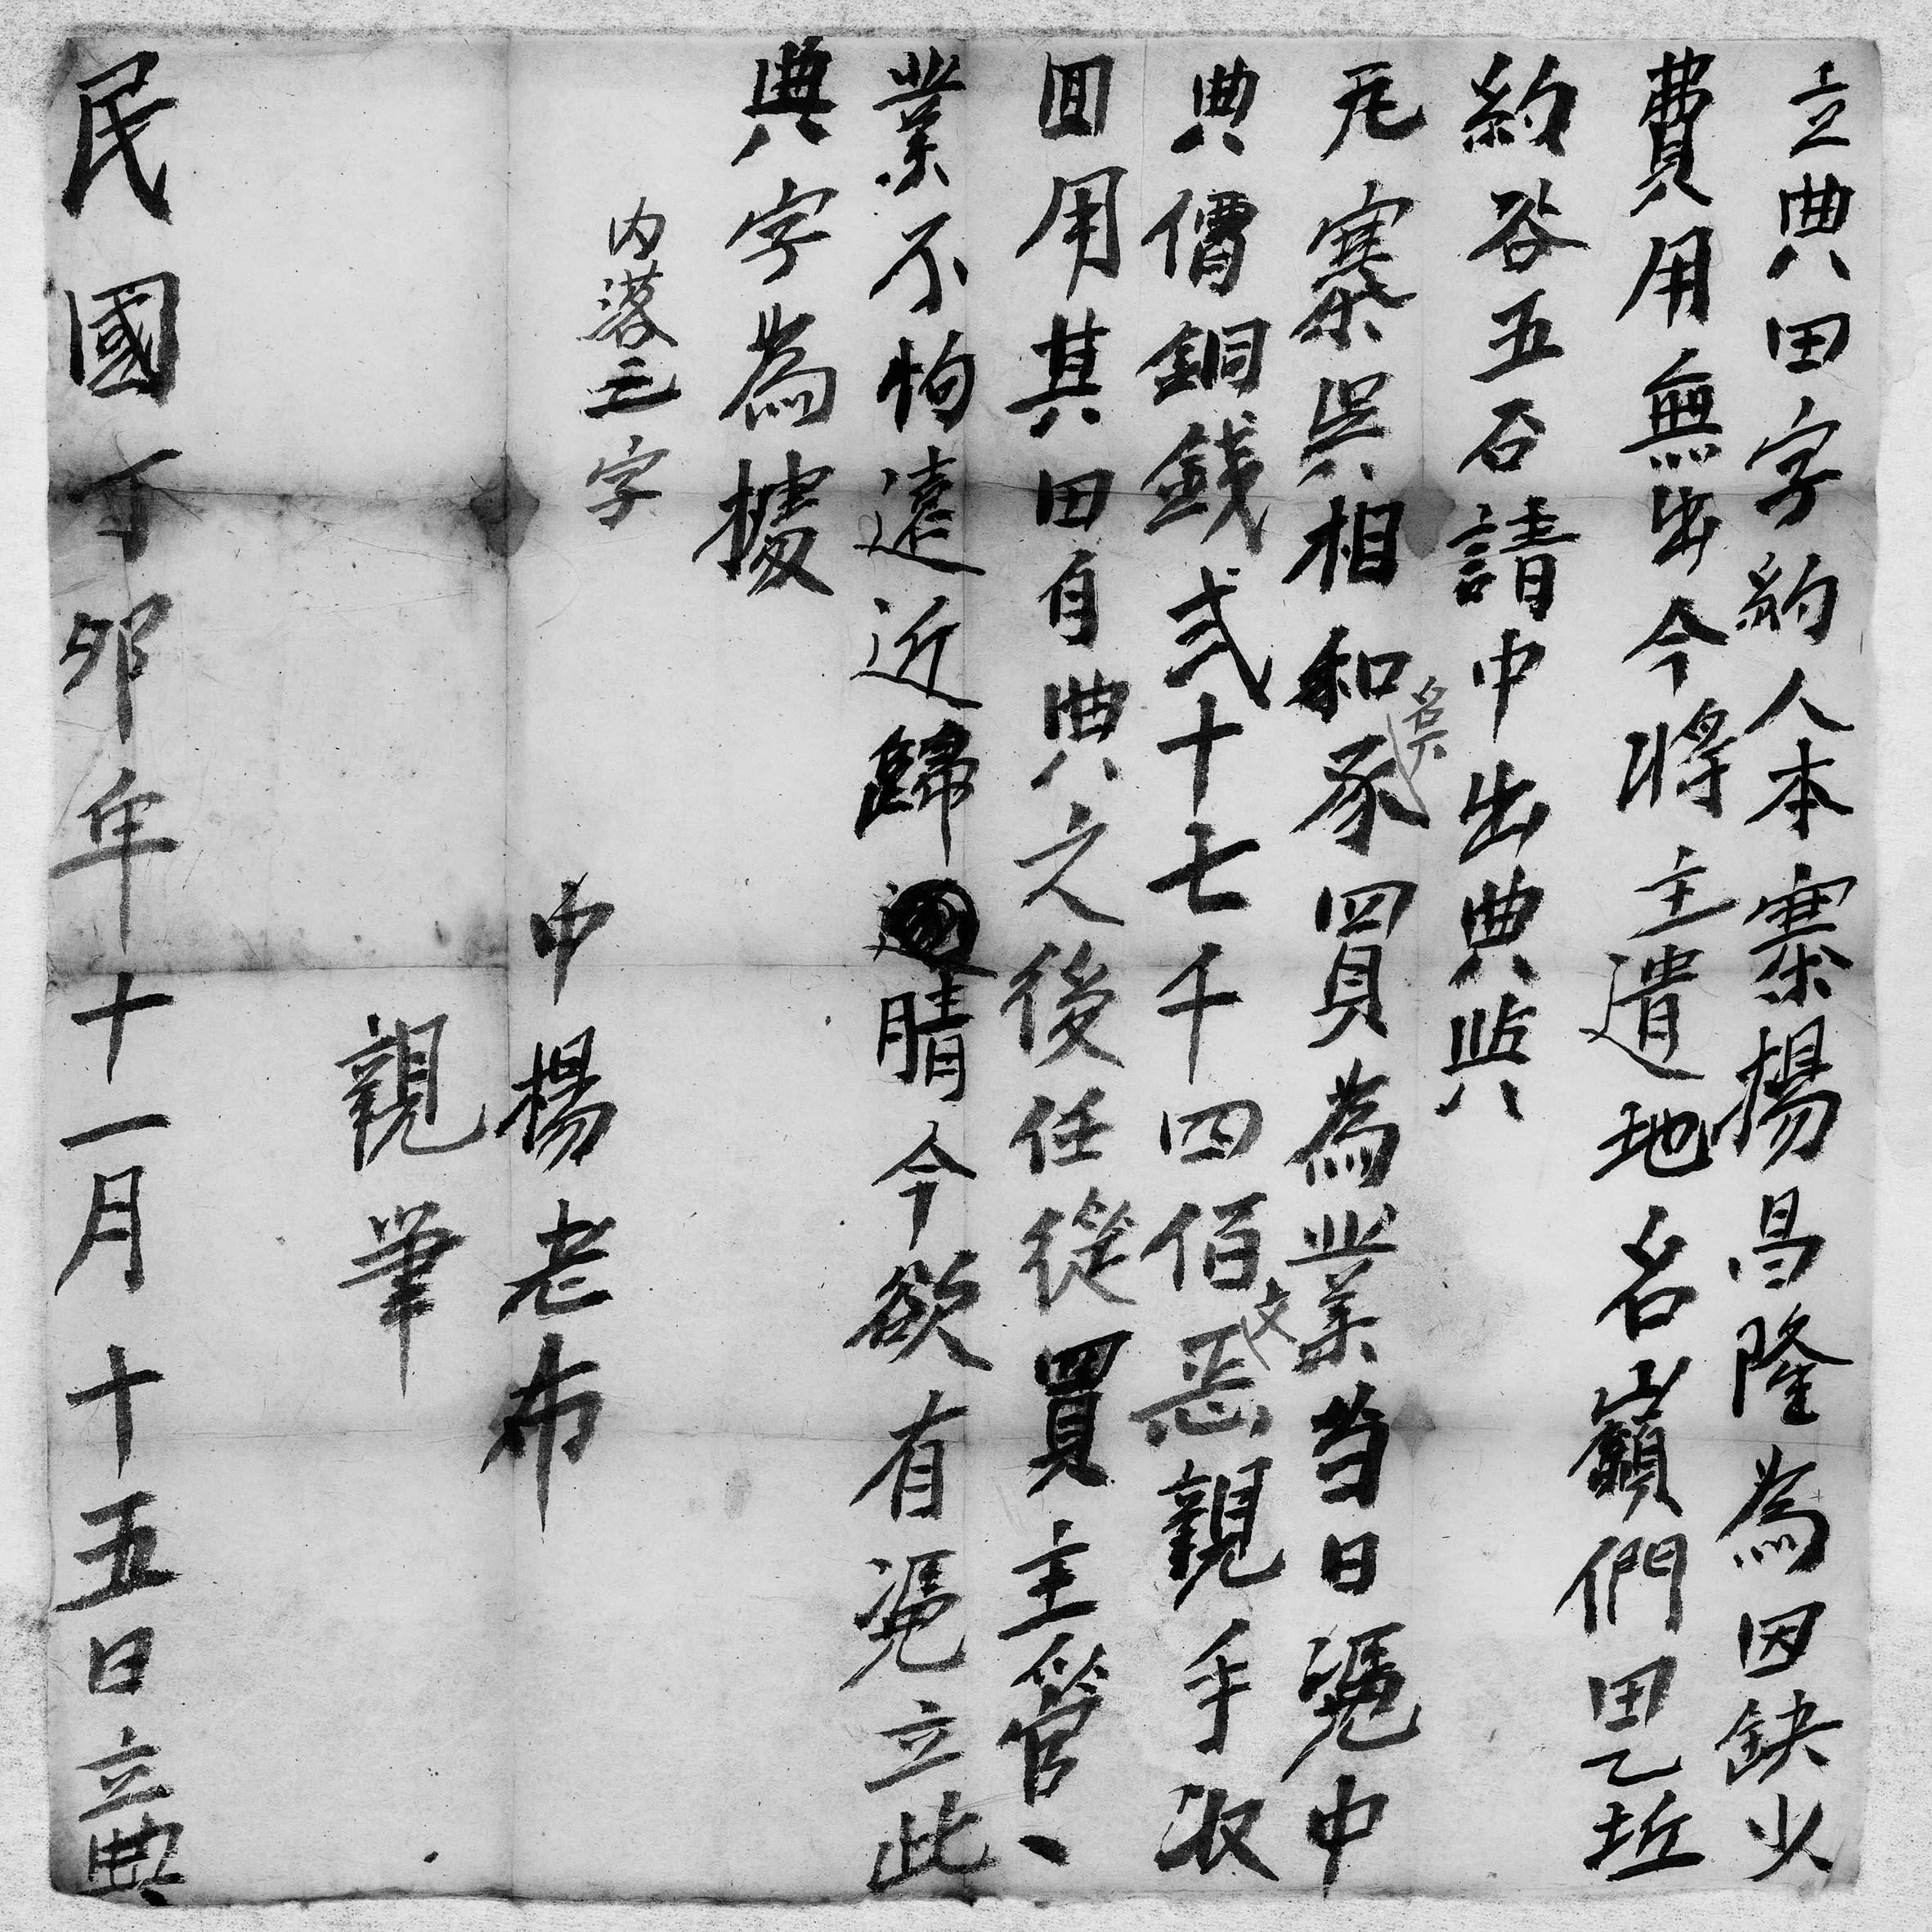 立典田字約人本寨楊昌隆為因缺少
費用無出今將主遺地名巔們田乙坵
約谷五石請中出典與
尭寨吳相和承買為業当日憑中
吳
典價銅錢弍十七千四佰恶親手收
文
回用其田自典之後任從買主管、
業不怕遠近歸晴今欲有凴立此
典字為據
内落三字
中楊老布
親筆
民國丁卯年十一月十五日立典